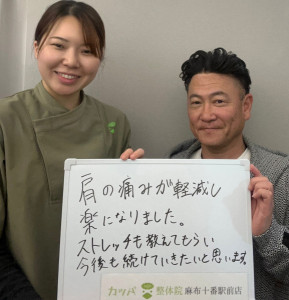 肩の痛みが軽減し
楽になりました。
ストレッチも教えてもらい
今後も続けていきたいと思います。
カッパ 整体院 麻布十番駅前店